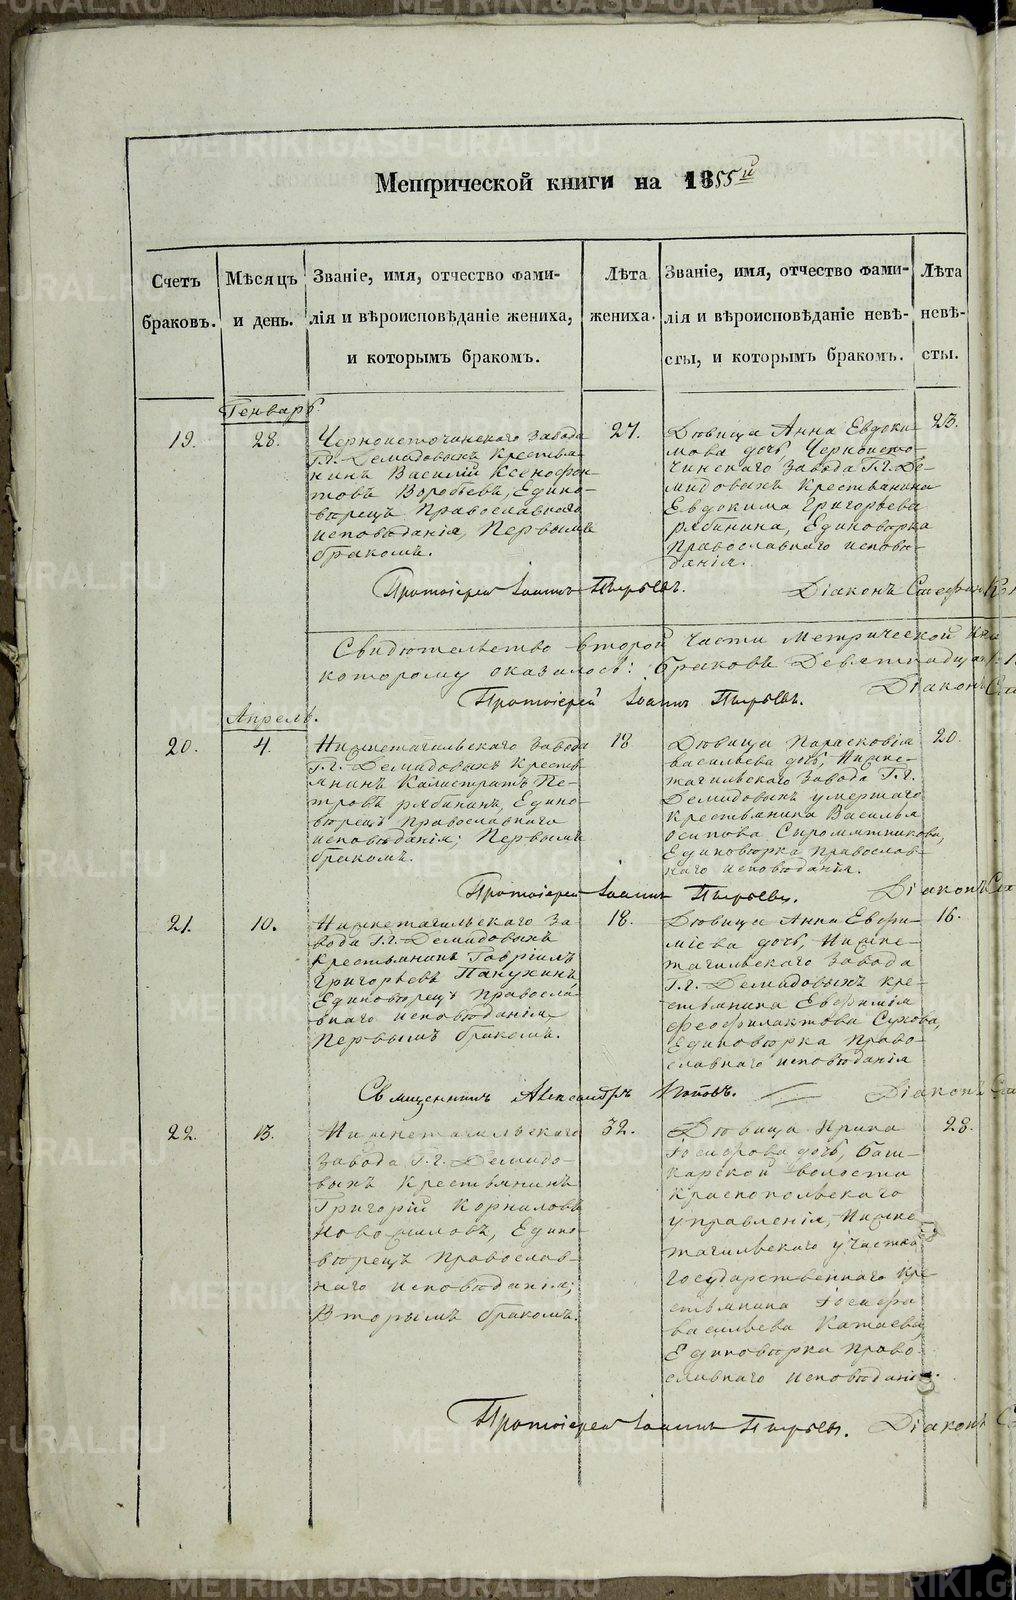 Метрической книги на 1855й
Счетъ браковъ.
Мѣсяцъ и день.
Званіе, имя, отчество фами-
лія и вѣроисповѣданіе жениха,
и которымъ бракомъ.
Лѣта жениха.
Званіе, имя, отчество фами-
лія и вѣроисповѣданіе невѣ-
сты, и которымъ бракомъ.
Лѣта невѣ-
сты.
Генварь
19.
28.
Черноисточинскаго завода
Г.г. Демидовыхъ крестья-
нинъ Василій Ксенофон-
товъ Воробьевъ, Едино-
вѣрецъ Православнаго
исповѣданія, Первымъ
бракомъ.
27.
Дѣвица Анна Евдоки-
мова дочь, Черноисто-
чинскаго завода Г.г. Де-
мидовыхъ крестьянина
Евдокима Григорьева
Рябинина, Единовѣрка
Православнаго исповѣ-
данія.
23.
Протоіерей Іоаннъ Пырьевъ.
Діаконъ Стефанъ
Свидѣтельство второй части метрической
которому оказалось: браковъ Девятнадцать
Протоіерей Іоаннъ Пырьевъ.
Діаконъ
Апрель.
20.
4.
Нижнетагильскаго завода
Г.г. Демидовыхъ кресть-
янинъ Калистратъ Пе-
тровъ Рябининъ, Едино-
вѣрецъ Православнаго
исповѣданія; Первымъ
бракомъ.
18
Дѣвица Парасковія
Васильева дочь, Нижне-
тагильскаго завода Г.г.
Демидовыхъ умершаго
крестьянина Василья
Осипова Сыромятникова,
Единовѣрка Православ-
наго исповѣданія.
20.
Протоіерей Іоаннъ Пырьевъ.
Діаконъ
21.
10.
Нижнетагильскаго За-
вода Г.г. Демидовыхъ
крестьянинъ Гавріилъ
Григорьевъ Панухинъ,
Единовѣрецъ Правосла-
внаго исповѣданія
Первымъ бракомъ.
18.
Дѣвица Анна Евфи-
міева дочь, Нижне-
тагильскаго завода
Г.г. Демидовыхъ кре-
стьянина Евфимія
Феофилактова Сухова,
Единовѣрка Право-
славнаго исповѣданія
16.
Священникъ Александръ Поповъ.
Діаконъ
22.
13.
Нижнетагильскаго
завода Г.г. Демидо-
выхъ Крестьянинъ
Григорій Корниловъ
Новожиловъ, Едино-
вѣрецъ Православ-
наго исповѣданія;
Вторымъ бракомъ.
32.
Дѣвица Ирина
Іосифова дочь, Баш-
карской волости
Краснопольскаго
управленія, Нижне-
тагильскаго участка
государственнаго кре-
стьянина Іосифа
Васильева Катаева,
Единовѣрка Право-
славнаго исповѣданія.
28.
Протоіерей Іоаннъ Пырьевъ.
Діаконъ
METRIKI.GASO-URAL.RU